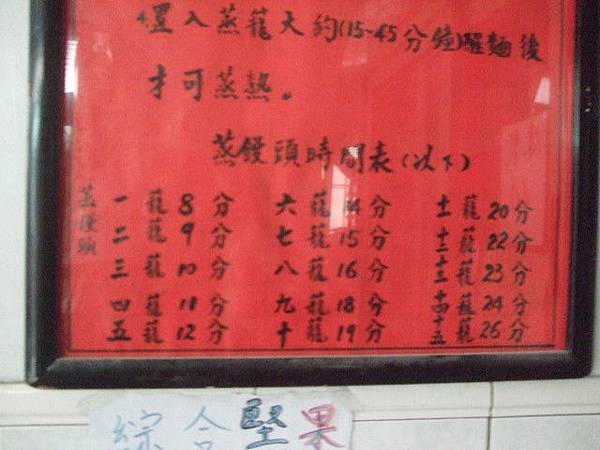 置入蒸籠大約(15~45分鐘)醒麵後
才可蒸熟。
蒸饅頭時間表(以下)
蒸饅頭
一籠8分 六籠14分 十一籠20分
二籠9分 七籠15分 十二籠22分
三籠10分 八籠16分 十三籠23分
四籠11分 九籠18分 十四籠24分
五籠12分 十籠19分 十五籠26分
綜合堅果